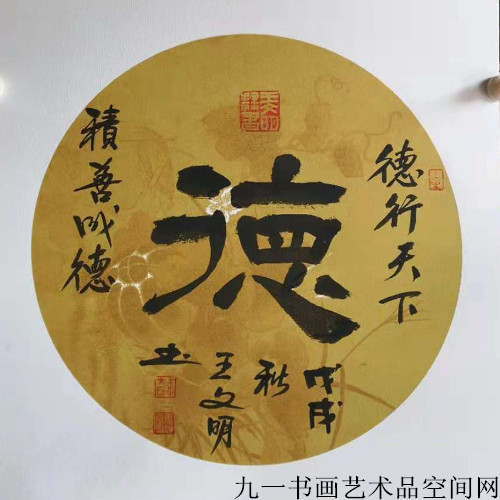 德行天下
德
積善成德
戊戌
秋
王文明
书
九一书画艺术品空间网